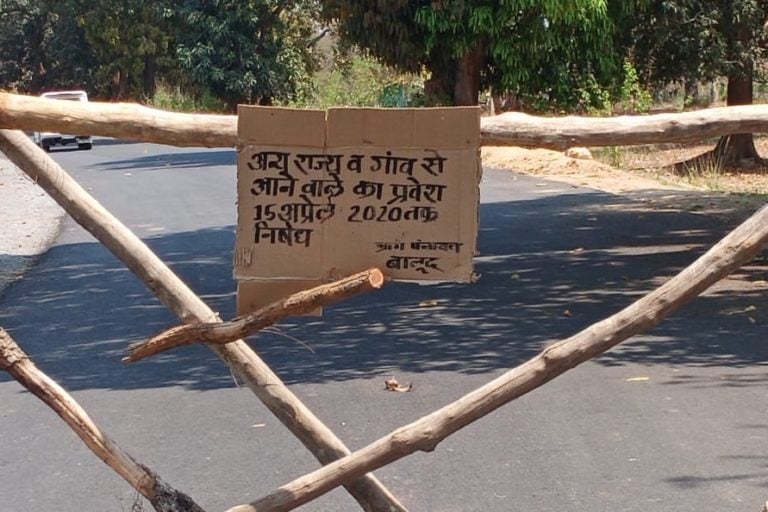 अन्य राज्य व गांव से
आने वाले का प्रवेश
15 अप्रेल 2020 तक
निषेध
ग्राम पंचायत
बानूद